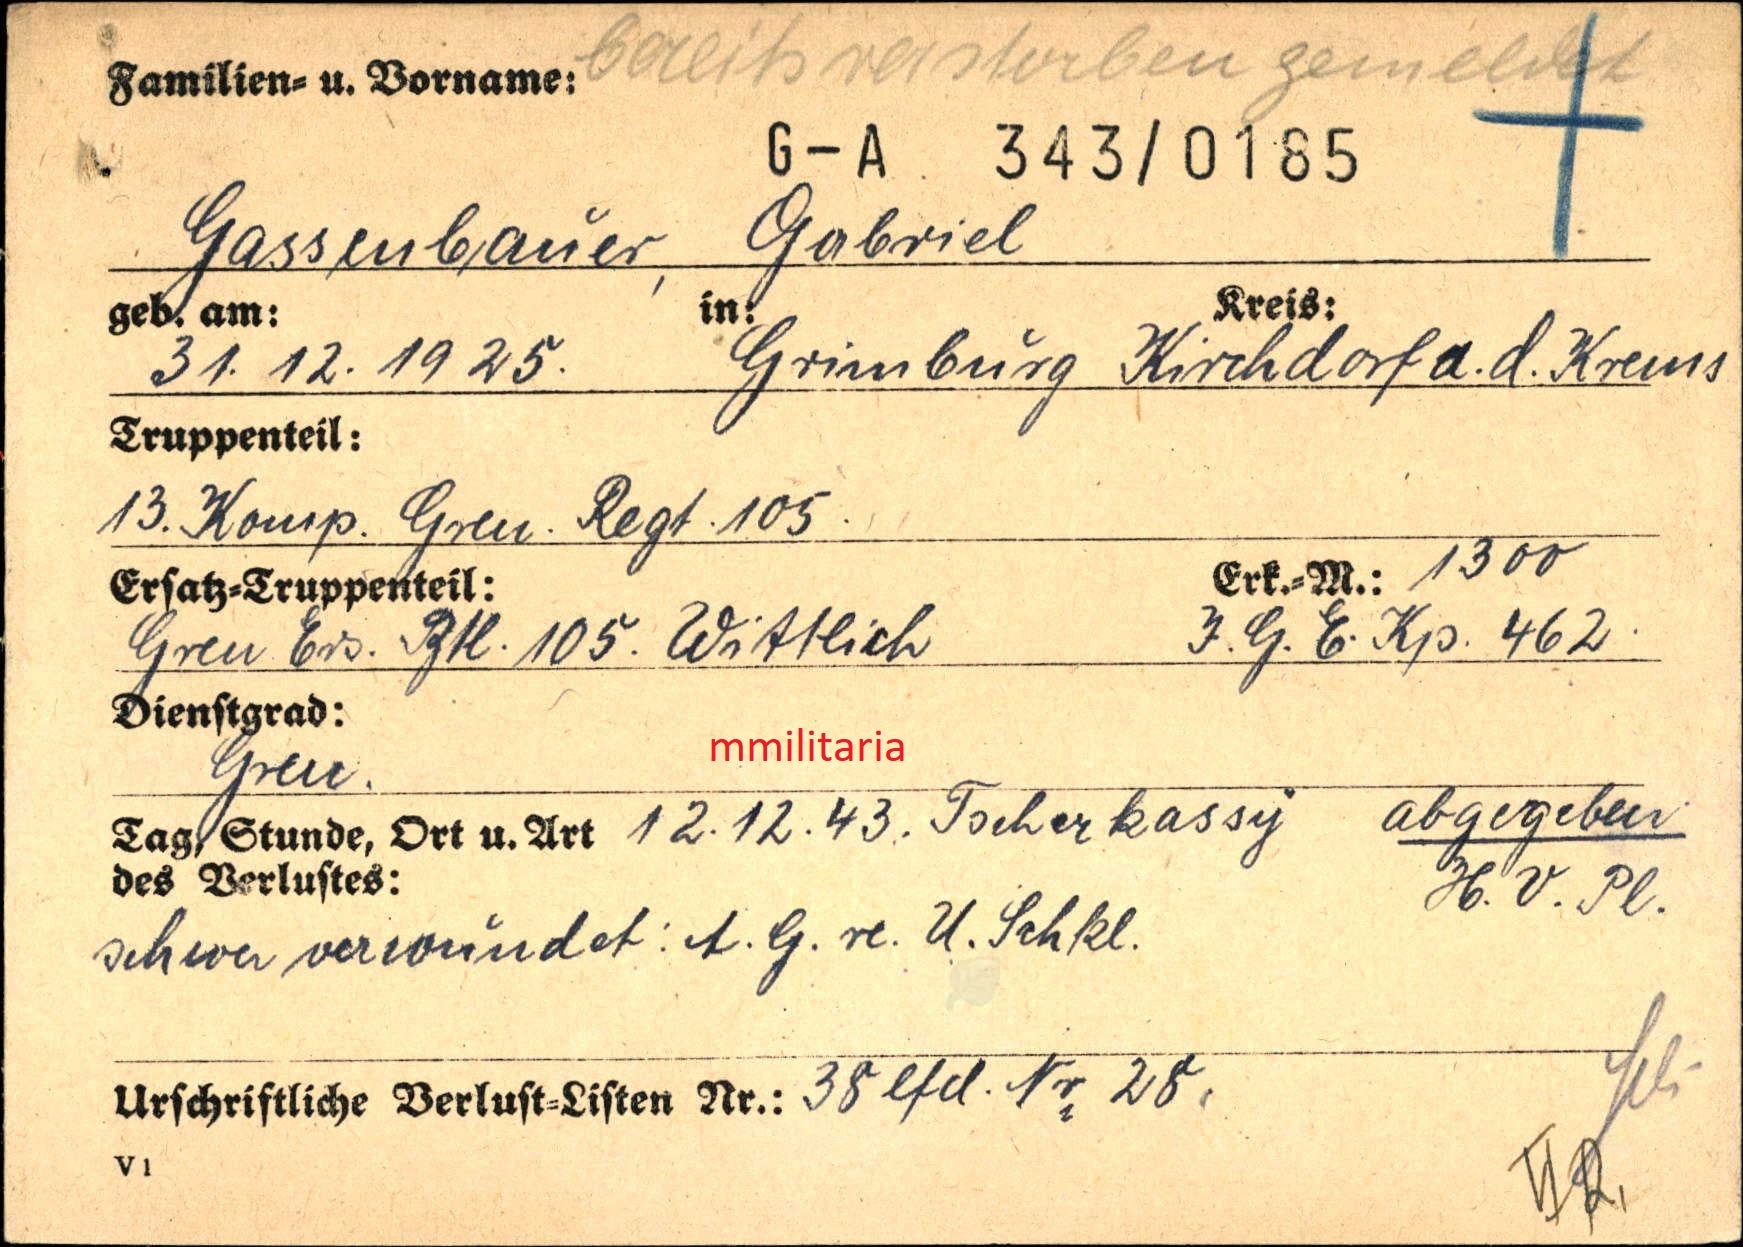 bereits verstorben gemeldet
Familien- u. Vorname:
G-A 343/0185
Gassenbauer, Gabriel
geb. am: in: Kreis:
31. 12. 1925. Grimburg Kirchdorf a. d. Krems
Truppenteil:
13. Komp. Gren. Regt. 105.
Ersatz-Truppenteil: Erk.-M.: 1300
Gren Ers. Btl. 105. Wittlich J. G. E. Kp. 462.
Dienstgrad:
mmilitaria
Gren.
Tag, Stunde, Ort u. Art 12. 12. 43. Tscherkassy abgegeben
des Verlustes: H. V. Pl.
schwer verwundet: A. G. re. U. Schkl.
Urschriftliche Verlust-Listen Nr.: 38 lfd. Nr. 28.
V 1